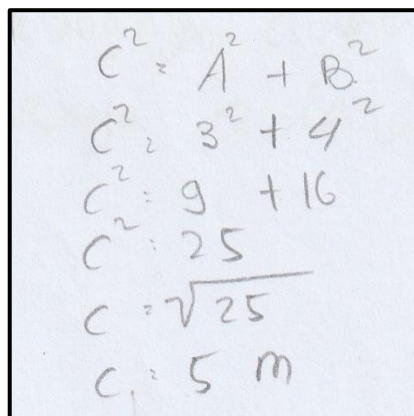 C² = A² + B²
C² = 3² + 4²
C² = 9 + 16
C² = 25
C = √25
C = 5 m